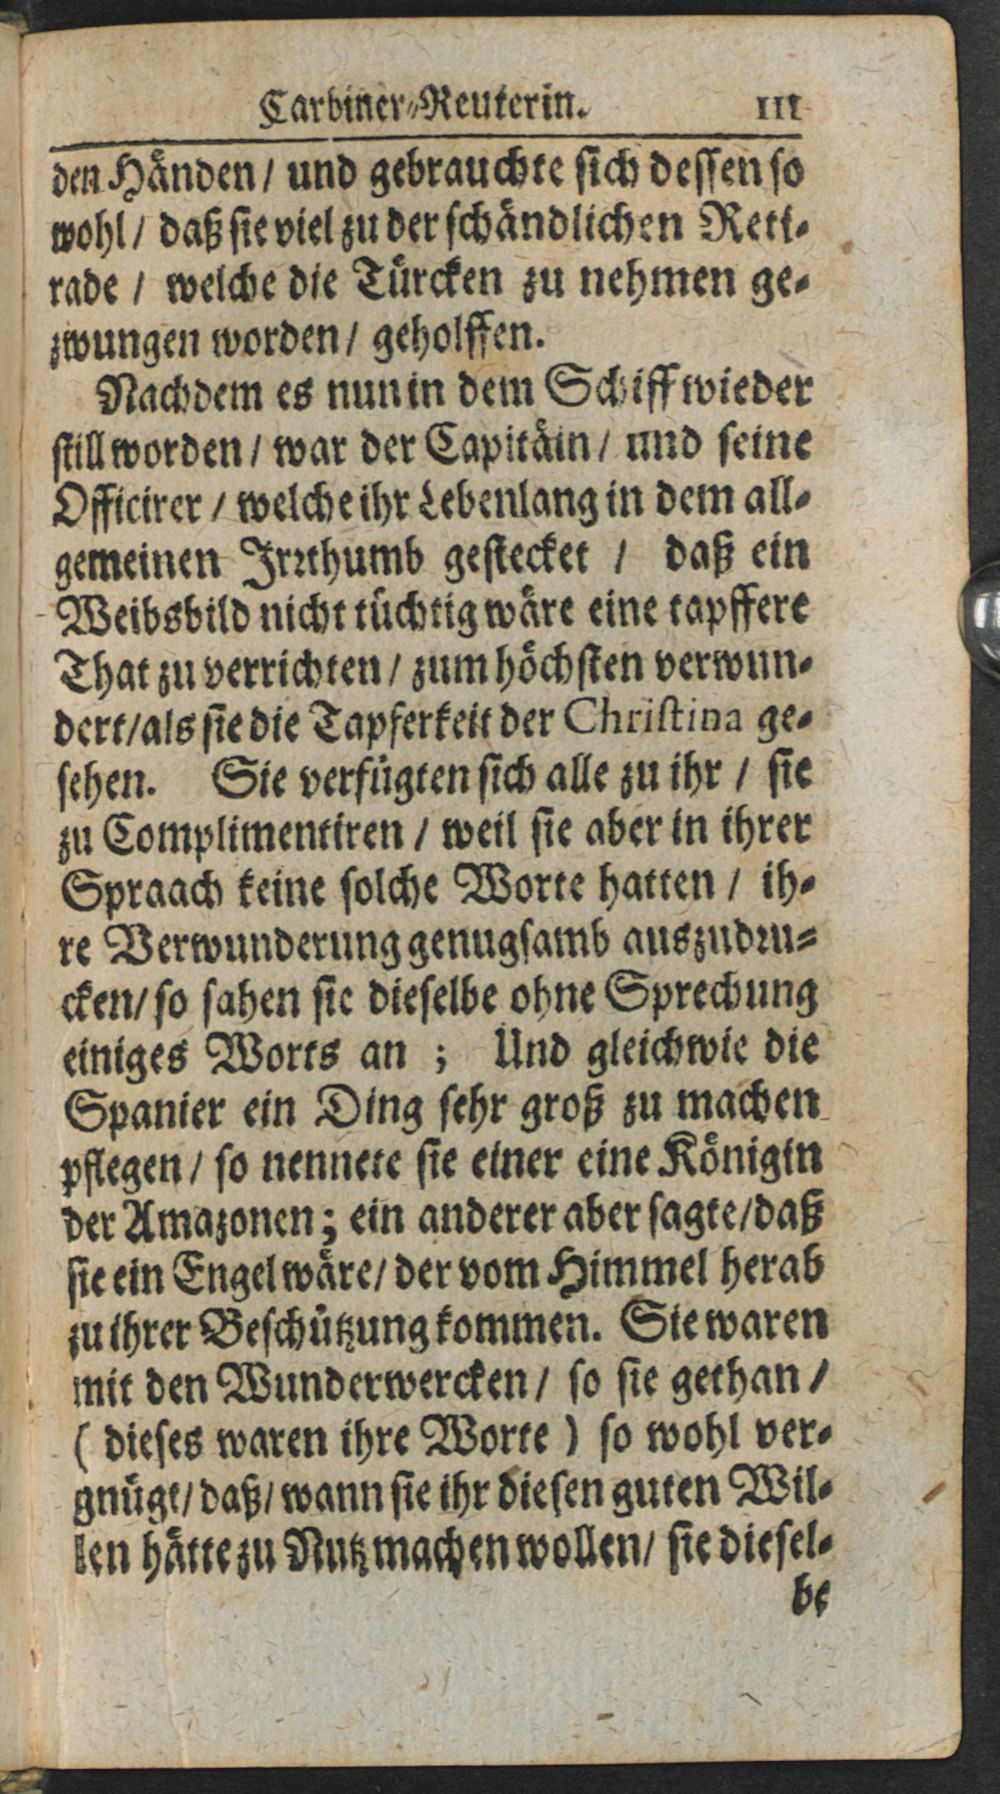 Carbiner-Reuterin. 111
den Händen / und gebrauchte sich dessen so
wohl / daß sie viel zu der schändlichen Reti-
rade / welche die Türcken zu nehmen ge-
zwungen worden / geholffen.
Nachdem es nun in dem Schiff wieder
still worden / war der Capitäin / und seine
Officirer / welche ihr Lebenlang in dem all-
gemeinen Irrthumb gestecket / daß ein
Weibsbild nicht tüchtig wäre eine tapffere
That zu verrichten / zum höchsten verwun-
dert / als sie die Tapferkeit der Christina ge-
sehen. Sie verfügten sich alle zu ihr / sie
zu Complimentiren / weil sie aber in ihrer
Spraach keine solche Worte hatten / ih-
re Verwunderung genugsamb auszudru-
cken / so sahen sie dieselbe ohne Sprechung
einiges Worts an ; Und gleichwie die
Spanier ein Ding sehr groß zu machen
pflegen / so nennete sie einer eine Königin
der Amazonen ; ein anderer aber sagte / daß
sie ein Engel wäre / der vom Himmel herab
zu ihrer Beschützung kommen. Sie waren
mit den Wunderwercken / so sie gethan /
( dieses waren ihre Worte ) so wohl ver-
gnügt / daß / wann sie ihr diesen guten Wil-
len hätte zu Nutz machen wollen / sie diesel-
be